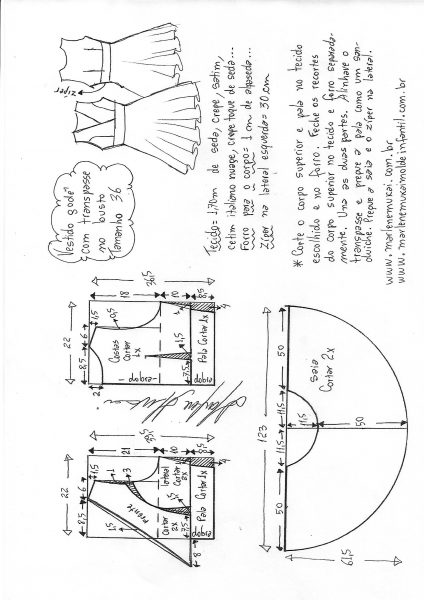 Zíper
Vestido godê
com transpasse
no busto
tamanho 36
Tecido= 1,70m de seda, crepe, satim,
cetim italiano nuage, crepe toque de seda...
Forro para o corpo= 1 cm de
Zíper na lateral esquerda= 30 cm
* Corte o corpo superior e pala no tecido
escolhido e no forro. Feche os recortes
do corpo superior no tecido e forro separada-
mente. Una as duas partes. Alinhave o
transpasse e pregue a pala como um san-
duíche. Pregue a saia e o zíper na lateral.
www.marlenemukai.com.br
www.marlenemukaimoldeinfantil.com.br
22
8,5
6
1,5
1
3
1,5
Frente
21
10
8,5
lateral
cortar
2x
Cortar
2x
7,5
dobra
Pala Cortar 1x
8
22
2
6
1,5
0,5
Costas
Cortar
1x
dobra
18
10
8,5
36,5
1,5
7,5
dobra
Pala Cortar 1x
123
50
11,5
11,5
50
11,5
Saia
Cortar 2x
50
61,5